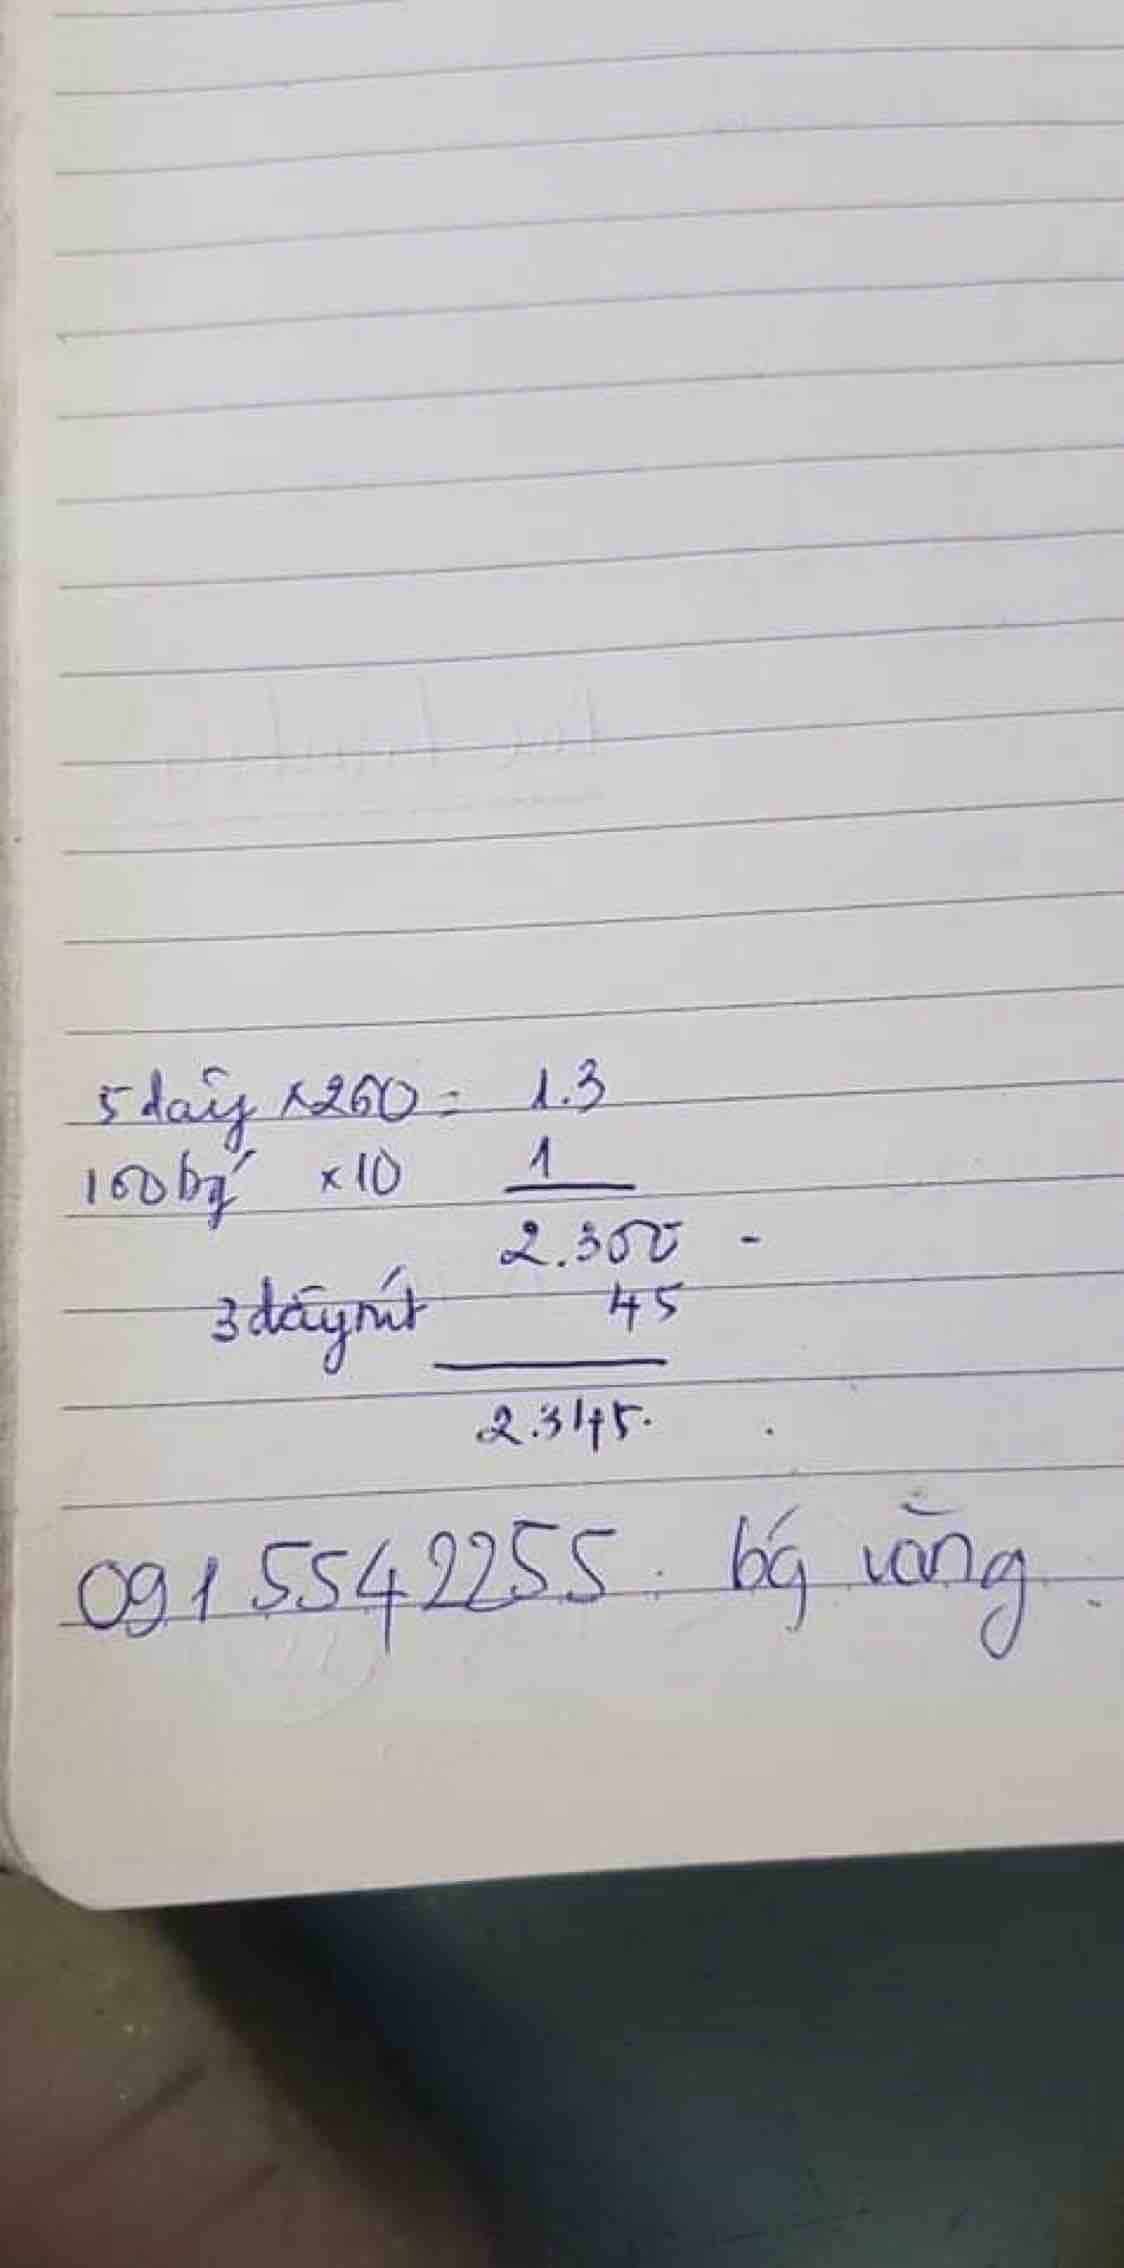 5 dây x260 = 1.3
100 bg x10 1
2.300 -
3 dây rút 45
2.345.
0915542255. bg răng